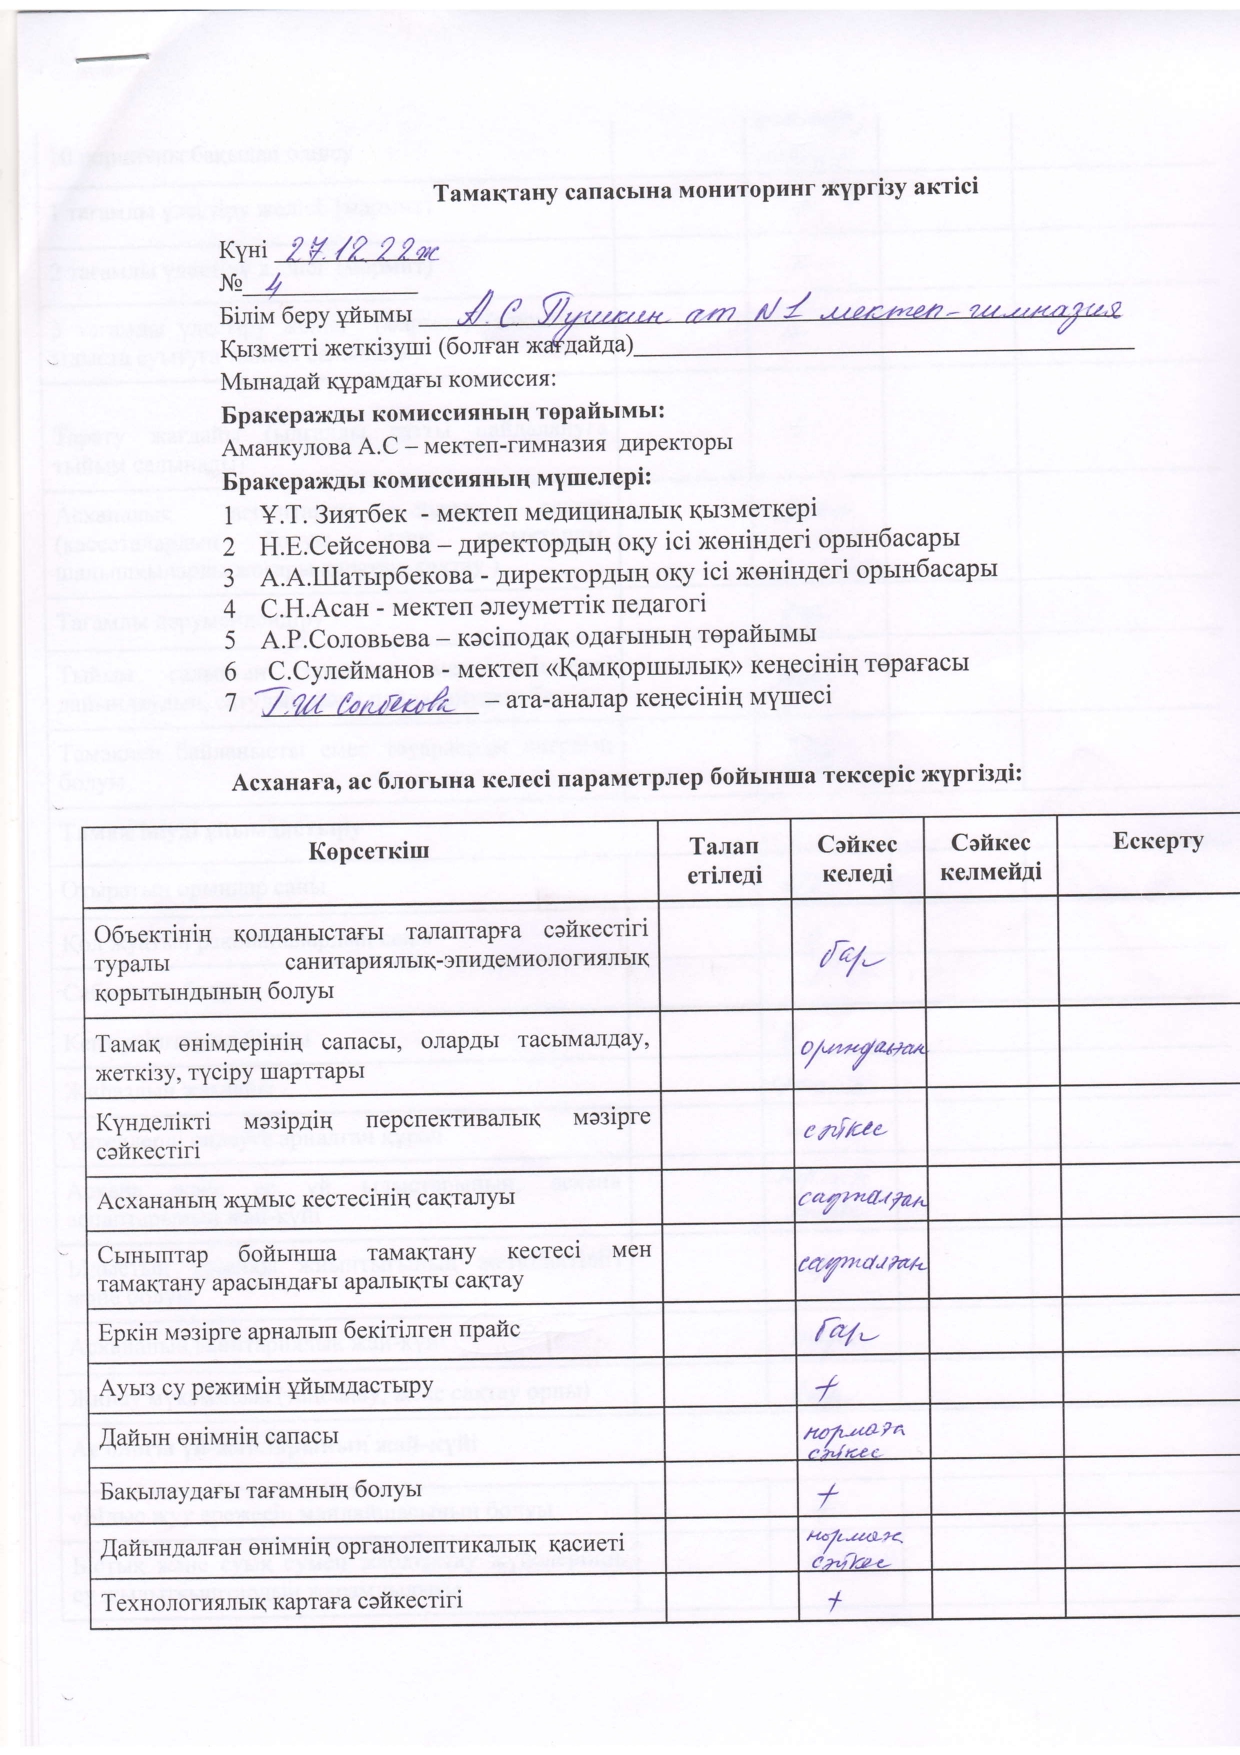 Тамақтану сапасына мониторинг жүргізу актісі
Күні 27.12.22ж
№ 4
Білім беру ұйымы А.С Пушкин ат N1 мектеп-гимназия
Қызметті жеткізуші (болған жағдайда)
Мынадай құрамдағы комиссия:
Бракеражды комиссияның төрайымы:
Аманкулова А.С – мектеп-гимназия директоры
Бракеражды комиссияның мүшелері:
1 Ұ.Т. Зиятбек - мектеп медициналық қызметкері
2 Н.Е.Сейсенова – директордың оқу ісі жөніндегі орынбасары
3 А.А.Шатырбекова - директордың оқу ісі жөніндегі орынбасары
4 С.Н.Асан - мектеп әлеуметтік педагогі
5 А.Р.Соловьева – кәсіподақ одағының төрайымы
6 С.Сулейманов - мектеп «Қамқоршылық» кеңесінің төрағасы
7 Г.Ш – ата-аналар кеңесінің мүшесі
Асханаға, ас блогына келесі параметрлер бойынша тексеріс жүргізді:
Көрсеткіш Талап Сәйкес Сәйкес Ескерту
етіледі келеді келмейді
Объектінің қолданыстағы талаптарға сәйкестігі
туралы санитариялық-эпидемиологиялық бар
қорытындының болуы
Тамақ өнімдерінің сапасы, оларды тасымалдау, орындалған
жеткізу, түсіру шарттары
Күнделікті мәзірдің перспективалық мәзірге сәйкес
сәйкестігі
Асхананың жұмыс кестесінің сақталуы сақталған
Сыныптар бойынша тамақтану кестесі мен сақталған
тамақтану арасындағы аралықты сақтау
Еркін мәзірге арналып бекітілген прайс бар
Ауыз су режимін ұйымдастыру +
Дайын өнімнің сапасы нормаға
сәйкес
Бақылаудағы тағамның болуы +
Дайындалған өнімнің органолептикалық қасиеті
сәйкес
Технологиялық картаға сәйкестігі +